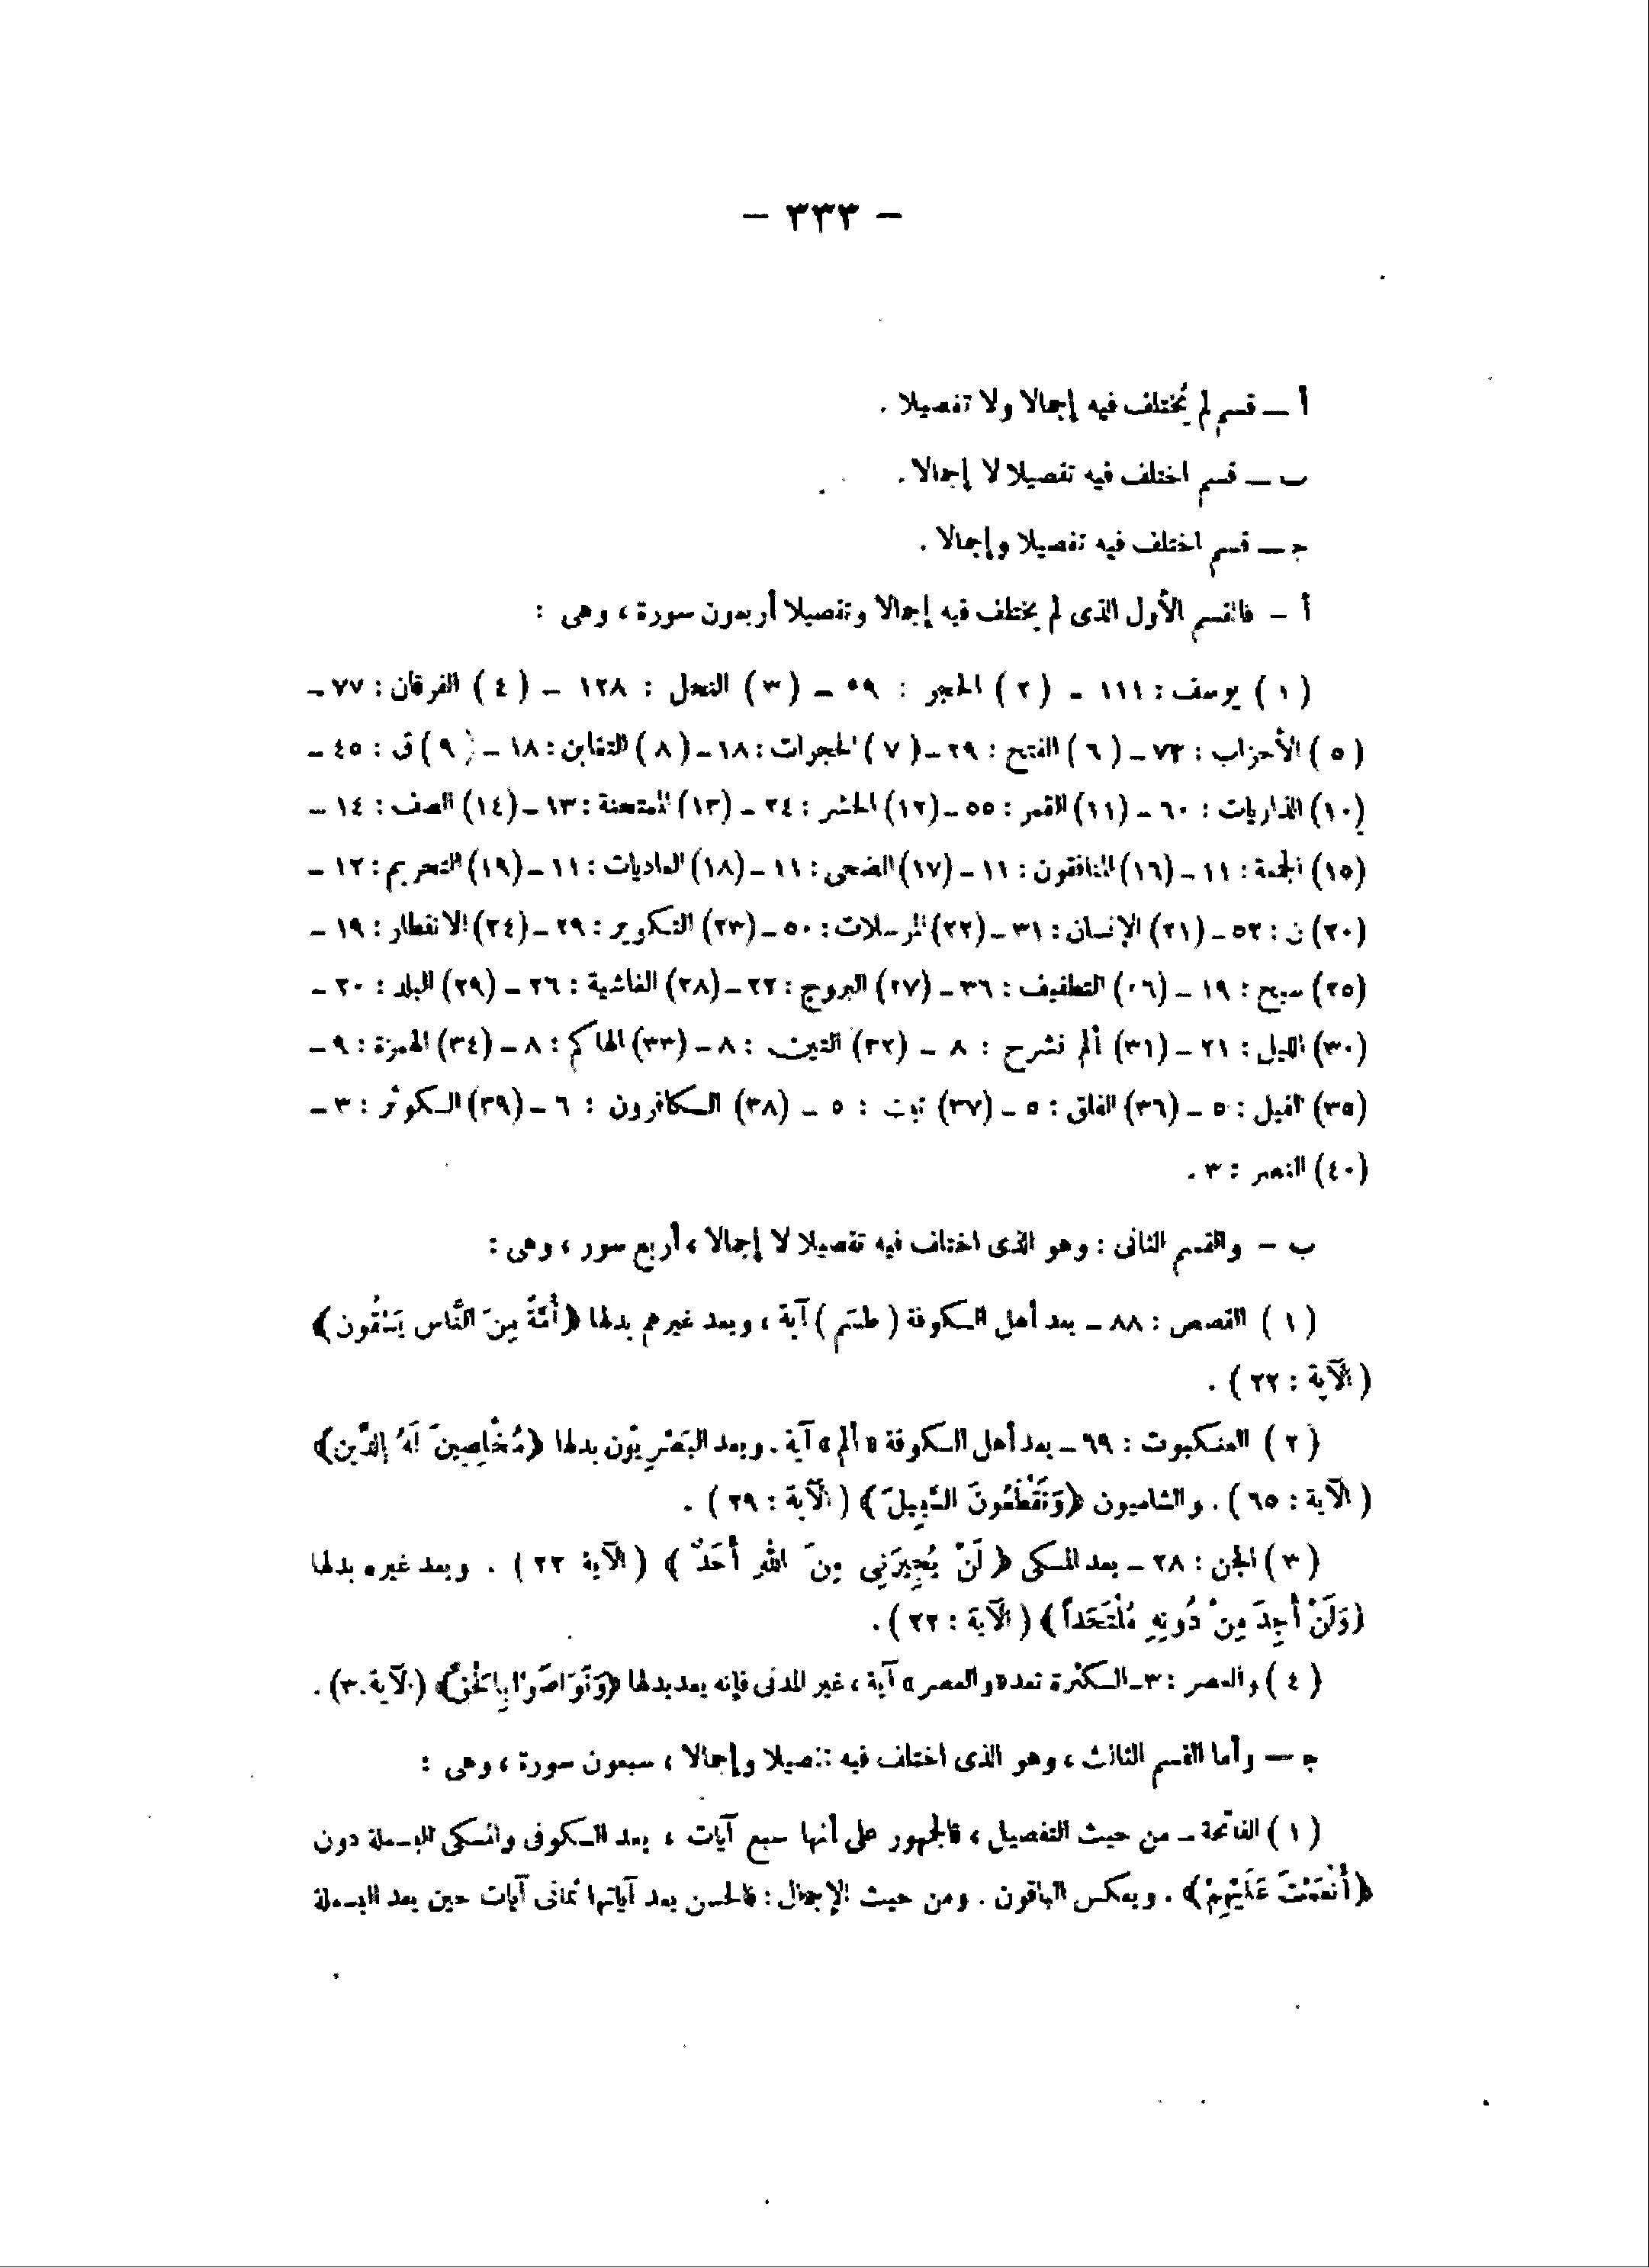 – ٣٣٣ –
أ – قسم لم يُختلف فيه إجمالا ولا تفصيلا .
ب – قسم اختلف فيه تفصيلا لا إجمالا .
ج – قسم اختلف فيه تفصيلا وإجمالا .
أ – فالقسم الأول الذى لم يختلف فيه إجمالا وتفصيلا أربعون سورة ، وهى :
( ١ ) يوسف : ١١١ – ( ٢ ) الحجر : ٥٩ – ( ٣ ) النحل : ١٢٨ – ( ٤ ) الفرقان : ٧٧ –
( ٥ ) الأحزاب : ٧٣ – ( ٦ ) الفتح : ٢٩ – ( ٧ ) الحجرات : ١٨ – ( ٨ ) التغابن : ١٨ – ( ٩ ) ق : ٤٥ –
(١٠) الذاريات : ٦٠ – (١١) القمر : ٥٥ – (١٢) الحشر : ٢٤ – (١٣) الممتحنة : ١٣ – (١٤) الصف : ١٤ –
(١٥) الجمعة : ١١ – (١٦) المنافقون : ١١ – (١٧) الضحى : ١١ – (١٨) العاديات : ١١ – (١٩) التحريم : ١٢ –
(٢٠) ن : ٥٢ – (٢١) الإنسان : ٣١ – (٢٢) المرسلات : ٥٠ – (٢٣) التكوير : ٢٩ – (٢٤) الانفطار : ١٩ –
(٢٥) سبح : ١٩ – (٠٦) التطفيف : ٣٦ – (٢٧) البروج : ٢٢ – (٢٨) الغاشية : ٢٦ – (٢٩) البلد : ٢٠ –
(٣٠) الليل : ٢١ – (٣١) ألم نشرح : ٨ – (٣٢) التين : ٨ – (٣٣) الهاكم : ٨ – (٣٤) الهمزة : ٩ –
(٣٥) الفيل : ٥ – (٣٦) الفلق : ٥ – (٣٧) تبت : ٥ – (٣٨) الكافرون : ٦ – (٣٩) الكوثر : ٣ –
(٤٠) النصر : ٣ .
ب – والقسم الثانى : وهو الذى اختلف فيه تفصيلا لا إجمالا ، أربع سور ، وهى :
( ١ ) القصص : ٨٨ – يعد أهل الكوفة ( طسم ) آية ، ويعد غيرهم بدلها ﴿أُمَّةً مِنَ النَّاس يَسْقُون﴾
( الآية : ٢٢ ) .
( ٢ ) العنكبوت : ٦٩ – يعد أهل الكوفة « ألم » آية . ويعد البَصْرِيّون بدلها ﴿مُخْلِصِينَ لَهُ الدِّين﴾
( الآية : ٦٥ ) . والشاميون ﴿وَتَقْطَعُونَ السَّبِيلَ﴾ ( الآية : ٢٩ ) .
( ٣ ) الجن : ٢٨ – يعد المكى ﴿ لَنْ يُجِيرَنِى مِنَ اللهِ أَحَدٌ ﴾ ( الآية ٢٢ ) . ويعد غيره بدلها
﴿وَلَنْ أَجِدَ مِنْ دُونِهِ مُلْتَحَداً﴾ ( الآية : ٢٢ ) .
( ٤ ) والعصر : ٣ – الكثرة تعد « والعصر » آية ، غير المدنى فإنه يعد بدلها ﴿وَتَوَاصَوْا بِالْحَقِّ﴾ (الآية.٣) .
ج – وأما القسم الثالث ، وهو الذى اختلف فيه تفصيلا وإجمالا ، سبعون سورة ، وهى :
( ١ ) الفاتحة – من حيث التفصيل ، فالجمهور على أنها سبع آيات ، يعد الكوفى والمكى البسملة دون
﴿أَنْعَمْتَ عَلَيْهِمْ﴾ . ويعكس الباقون . ومن حيث الإجمال : فالحسن يعد آياتها ثمانى آيات حين يعد البسملة